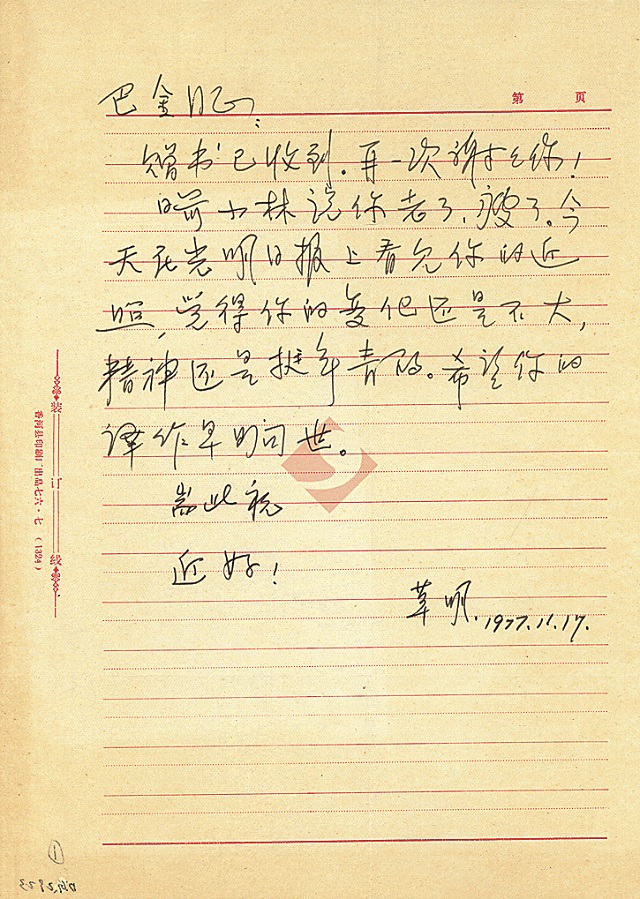 第 页
巴金同志:
赠书已收到。再一次谢谢你!
日前小林说你老了,疲了。今
天在光明日报上看见你的近
照,觉得你的变化还是不大,
精神还是挺年青的。希望你的
译作早日问世。
耑此祝
近好!
草明.1977.11.17.
装订线
香河县印刷厂出品七六·七(1324)
①